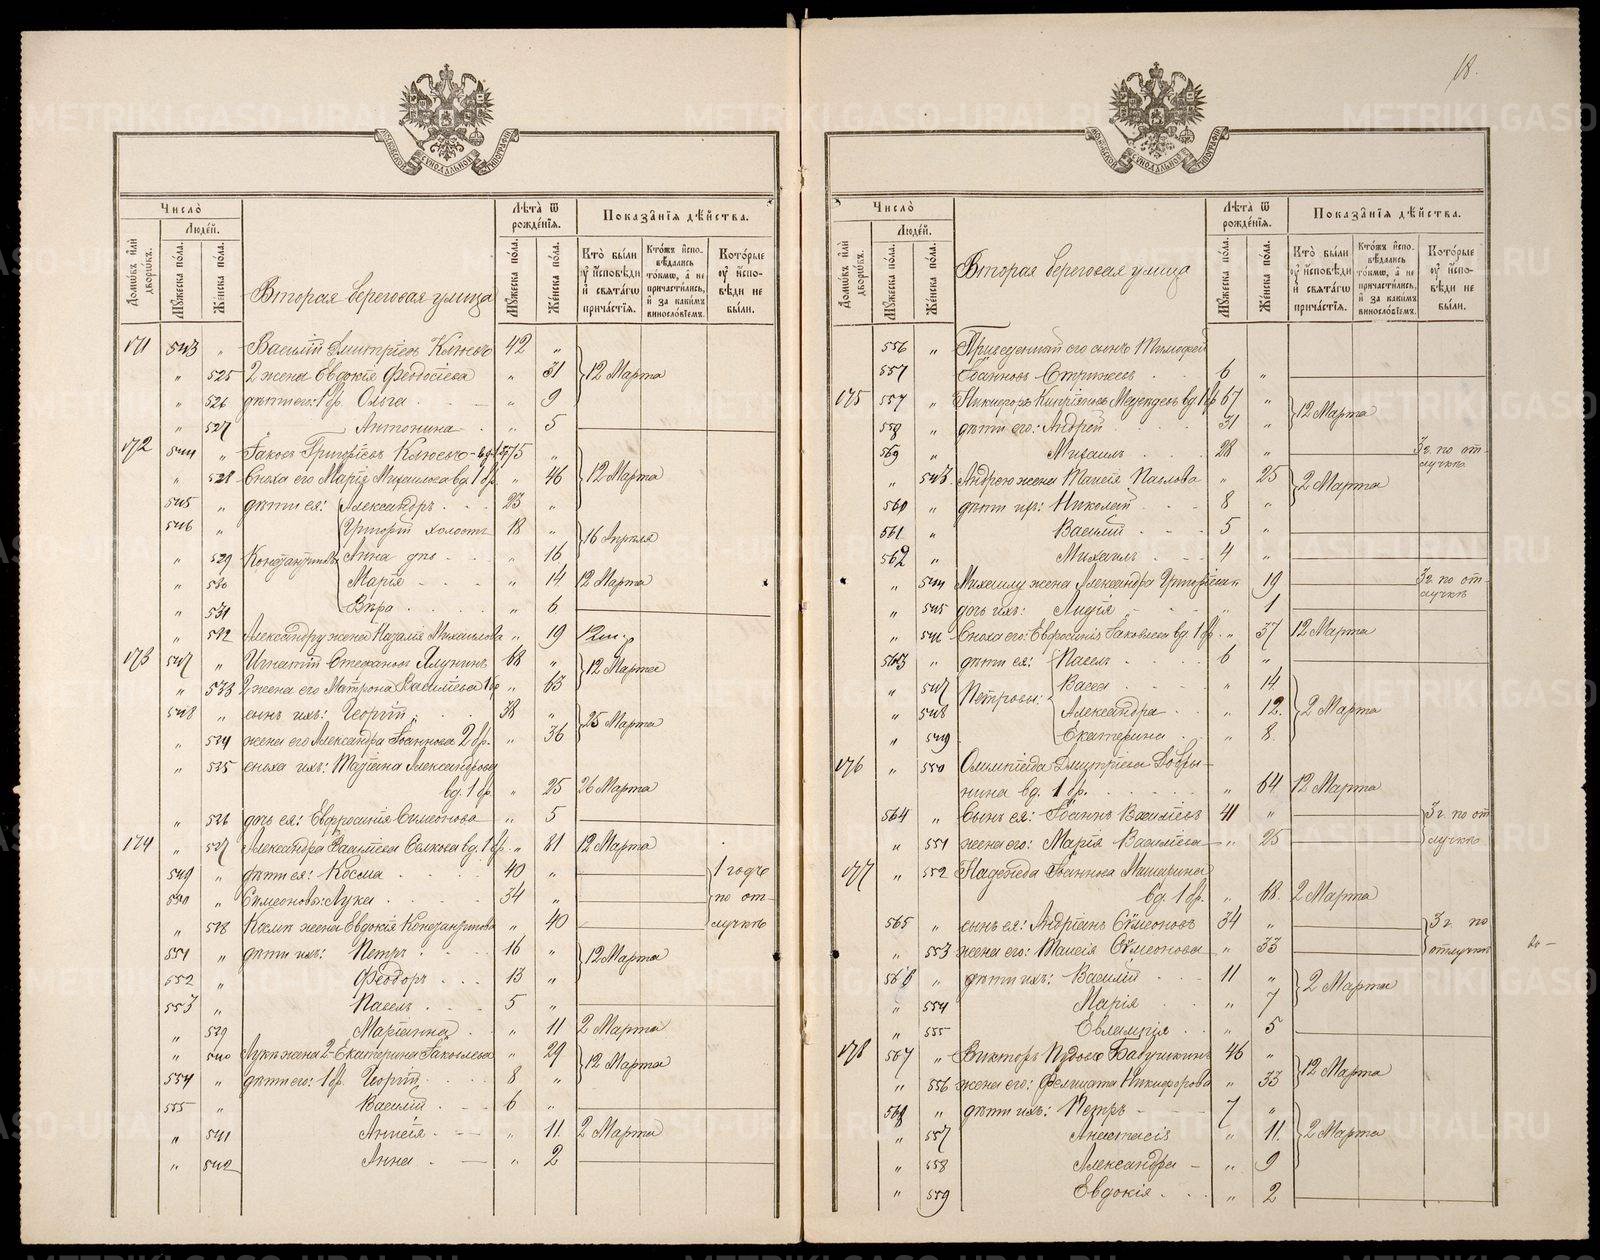 18.
Число̀
Людей.
Домѡвъ или дворѡвъ.
Мꙋжеска пола.
Женска пола.
Вторая береговая улица
Лѣта̀ ѿ рождéнїѧ.
Мꙋжеска пола.
Женска пола.
Показа̑нїѧ дѣ́йства.
Кто̀ бы́ли оу҆ и҆сповѣди и҆ свѧта́гѡ прича́стїѧ.
Кто́жъ и҆спо-вѣдались то́кмѡ, а҆ не причасти́лись, и҆ за каки́мъ винослⷪ҇вїемъ.
Кото́рые оу҆ и҆спо-вѣди не бы́ли.
171 543 „ Василий Димитриев Клюев 42 „
„ 525 2 жена Евдокия Феодосиева „ 31 12 Марта
„ 526 дѣти его: 1 бр. Ольга „ 9
„ 527 Антонина „ 5
172 544 „ Іаков Григорїев Клюев вд. 75 „
„ 528 Сноха его Марїя Михаилова вд. 1 бр. „ 46 12 Марта
545 „ дѣти ея: Александръ 23 „
546 „ Григорїй холостъ 18 „ 16 Апрѣля
„ 529 Константиновы Анна дѣв. „ 16
„ 530 Марїя „ 14 12 Марта
„ 531 Вѣра „ 6
„ 532 Александру жена Наталия Михаилова „ 19 12
173 547 „ Игнатїй Стефанов Ялунинъ 68 „ 12 Марта
„ 533 2 жена его Матрона Василїева 1 бр „ 63
548 „ сынъ ихъ: Георгїй 38 „ 25 Марта
„ 534 жена его Александра Іоаннова 2 бр. „ 36
„ 535 сноха ихъ: Марїана Александрова
вд. 1 бр. „ 25 26 Марта
„ 536 дочь ея: Евфросинїя Симеонова „ 5
174 „ 537 Александра Василїева вд. 1 бр. „ 81 12 Марта
549 „ дѣти ея: Косма 40 „ 1 годъ
550 „ Симеоновы: Лука 34 „ по от-
„ 538 Космѣ жена Евдокїя Константинова „ 40 лучкѣ
551 „ дѣти ихъ: Петръ 16 „ 12 Марта
552 „ Феодоръ 13 „
553 „ Павелъ 5 „
„ 539 Марїанна „ 11 2 Марта
„ 540 Лукѣ жена 2 Екатерина Іаковлева „ 29 12 Марта
554 „ дѣти его: 1 бр. Георгїй 8 „
555 „ Василїй 6 „
„ 541 Анисїя „ 11 2 Марта
„ 542 Анна „ 2
Число̀
Людей.
Домѡвъ или дворѡвъ.
Мꙋжеска пола.
Женска пола.
Вторая береговая улица
Лѣта̀ ѿ рождéнїѧ.
Мꙋжеска пола.
Женска пола.
Показа̑нїѧ дѣ́йства.
Кто̀ бы́ли оу҆ и҆сповѣди и҆ свѧта́гѡ прича́стїѧ.
Кто́жъ и҆спо-вѣдались то́кмѡ, а҆ не причасти́лись, и҆ за каки́мъ винослⷪ҇вїемъ.
Кото́рые оу҆ и҆спо-вѣди не бы́ли.
556 „ Приведенный его сынъ Тимофей
557 Іоаннов Стрижев 6 „
175 557 „ Никифоръ Киприянов вд. 1 бр 67 „ 12 Марта
558 „ дѣти его: Андрей 31 „
569 „ Михаилъ 28 „ 3 г. по от-лучкѣ
„ 543 Андрею жена Таисїя Павлова „ 25 2 Марта
560 „ дѣти ихъ: Николай 8 „
561 „ Василїй 5 „
562 „ Михаилъ 4 „
„ 544 Михаилу жена Александра Григорїева „ 19 3 г. по от-лучкѣ
„ 545 дочь ихъ: Лидїя „ 1
„ 546 Сноха его: Евфросинїя Іаковлева вд. 1 бр. „ 37 12 Марта
563 „ дѣти ея: Павелъ 6 „
„ 547 Петровы: Васса „ 14
„ 548 Александра „ 12. 2 Марта
„ 549 Екатерина „ 8
176 „ 550 Олимпїада Димитрїева Добры-
нина вд. 1 бр. „ 64 12 Марта
564 „ Сынъ ея: Іоаннъ Василїевъ 41 „ 3 г. по от
„ 551 жена его: Марїя Василїева „ 25 лучкѣ
177 „ 552 Надежда Іоаннова
вд. 1 бр. „ 68. 2 Марта
565 „ сынъ ея: Андрїанъ Сѵмеоновъ 34 „ 3 г. по
„ 553 жена его: Таисїя Сѵмеонова „ 33 отлучкѣ
566 „ дѣти ихъ: Василїй 11 „ 2 Марта
„ 554 Марїя „ 7
„ 555 Евлампїя „ 5
178 567 „ Викторъ Бабушкинъ 46 „ 12 Марта
„ 556 жена его: Фелицата Никифорова „ 33
568 „ дѣти ихъ: Петръ 7 „
„ 557 Анастасїя „ 11. 2 Марта
„ 558 Александра „ 9
„ 559 Евдокїя „ 2
METRIKI.GASO-URAL.RU